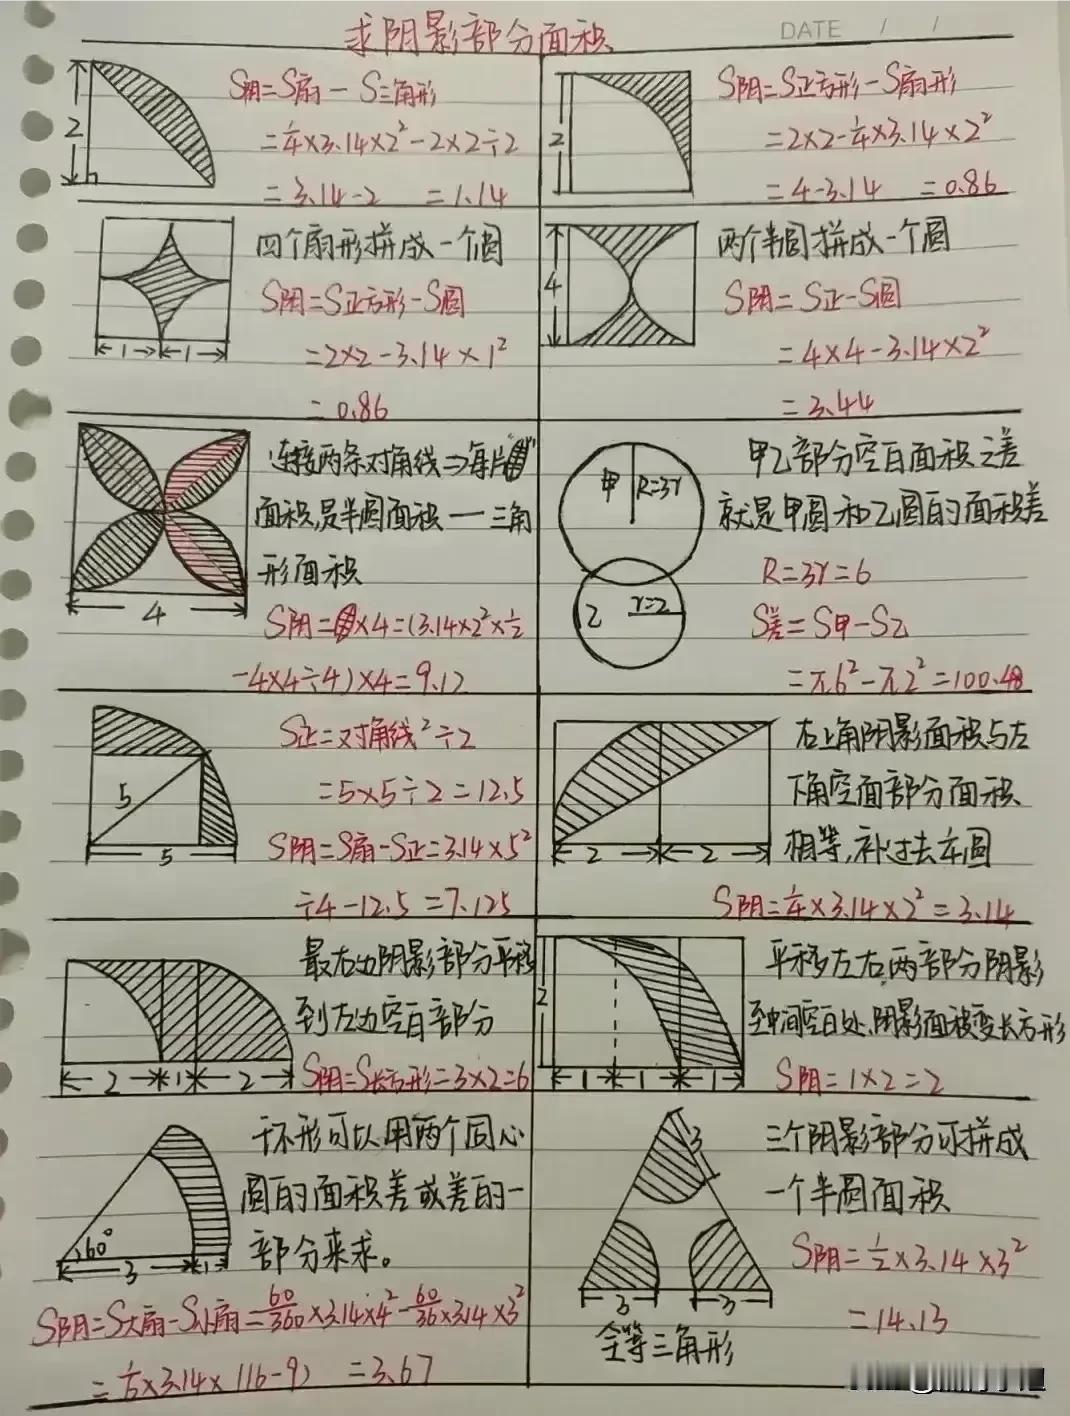 求阴影部分面积
DATE / /
2
S阴=S扇-S三角形
=1/4×3.14×2²-2×2÷2
=3.14-2 =1.14
2
S阴=S正方形-S扇形
=2×2-1/4×3.14×2²
=4-3.14 =0.86
四个扇形拼成一个圆
S阴=S正方形-S圆
=2×2-3.14×1²
=0.86
1 1
4
两个半圆拼成一个圆
S阴=S正-S圆
=4×4-3.14×2²
=3.44
连接两条对角线⇒每片
面积是半圆面积一三角
形面积
4
S阴=×4=(3.14×2²×1/2
-4×4÷4)×4=9.12
甲 R=3r
乙 r=2
甲乙部分空白面积之差
就是甲圆和乙圆的面积差
R=3r=6
S差=S甲-S乙
=π6²-π2²=100.48
5
5
S正=对角线²÷2
=5×5÷2=12.5
S阴=S扇-S正=3.14×5²
÷4-12.5=7.125
2 2
右上角阴影面积与左
下角空面部分面积
相等,补过去
S阴=1/4×3.14×2²=3.14
最右边阴影部分平移
到左边空白部分
2 1 2
S阴=S长方形=3×2=6
2
1 1 1
平移左右两部分阴影
至中间空白处,阴影面积变长方形
S阴=1×2=2
60°
3 1
环形可以用两个同心
圆的面积差或差的一
部分来求。
S阴=S大扇-S小扇=60/360×3.14×4²-60/36×3.14×3²
=1/6×3.14×(16-9) =3.67
3
3 3
全等三角形
三个阴影部分可拼成
一个半圆面积
S阴=1/2×3.14×3²
=14.13